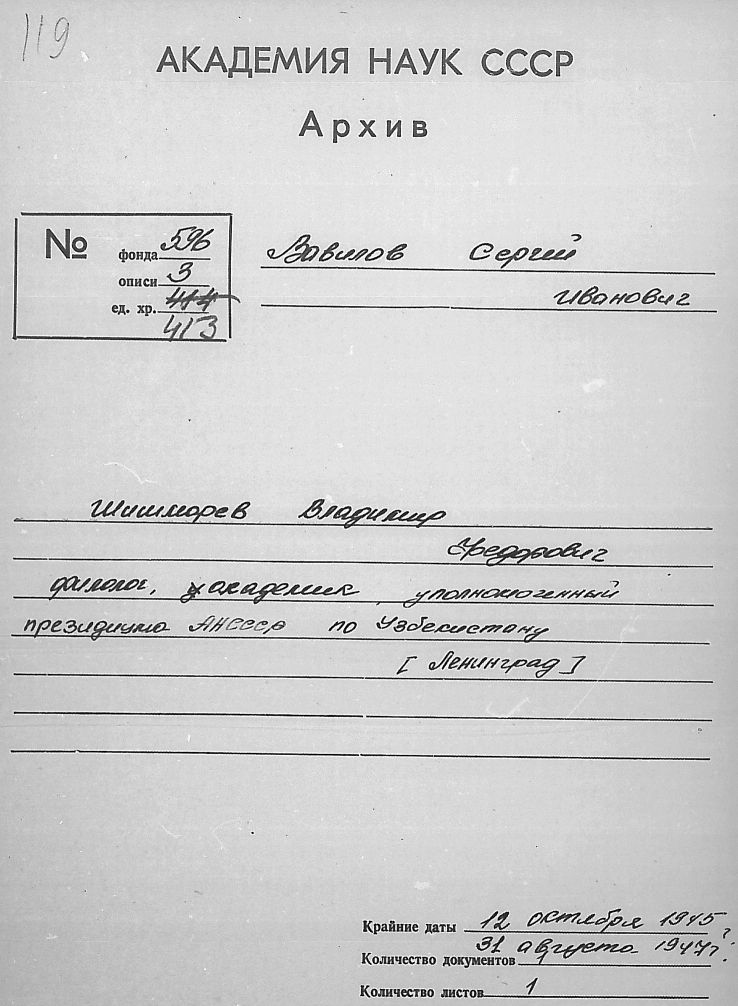 119
АКАДЕМИЯ НАУК СССР
Архив
№ фонда 596
описи 3
ед. хр. 414
413
Вавилов Сергей
Иванович
Шишмарев Владимир
Федорович
филолог, академик, уполномоченный
президиума АНСССР по Узбекистану
[Ленинград]
Крайние даты 12 октября 1945
31 августа 1947г.
Количество документов
Количество листов 1